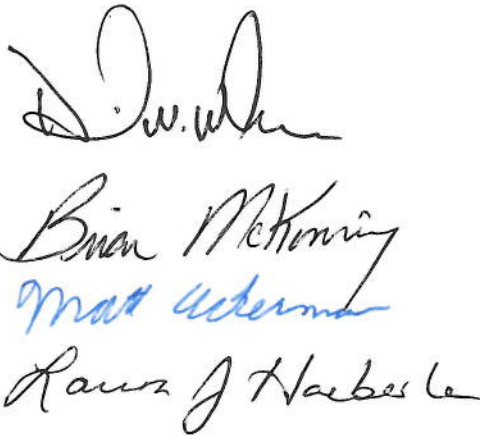 Brian McKenney
Matt Ackerman
Laura J Haeberle